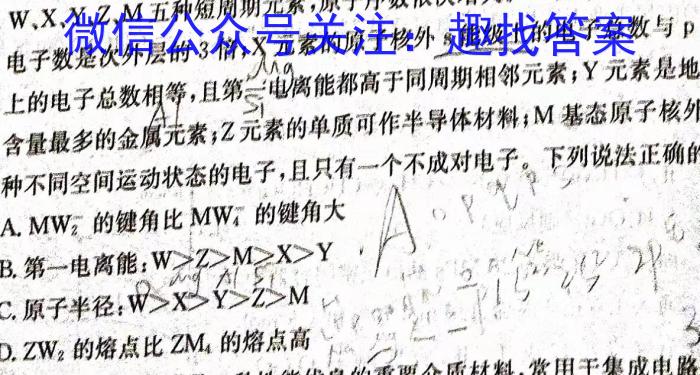 W、X、Y、Z、M 五种短周期元素,原子序数依次
微信公众号关注：趣找答案
电子数是次外层的 3 倍;X 元素的原子核外 s 能级上的电子总数与 p
上的电子总数相等,且第一电离能都高于同周期相邻元素;Y 元素是地
含量最多的金属元素;Z 元素的单质可作半导体材料;M 基态原子核外
种不同空间运动状态的电子,且只有一个不成对电子。下列说法正确的
A. MW₂⁻ 的键角比 MW₄⁻ 的键角大
B. 第一电离能:W>Z>M>X>Y
C. 原子半径:W>X>Y>Z>M
D. ZW₂ 的熔点比 ZM₄ 的熔点高
的重要介质材料,常用于集成电路